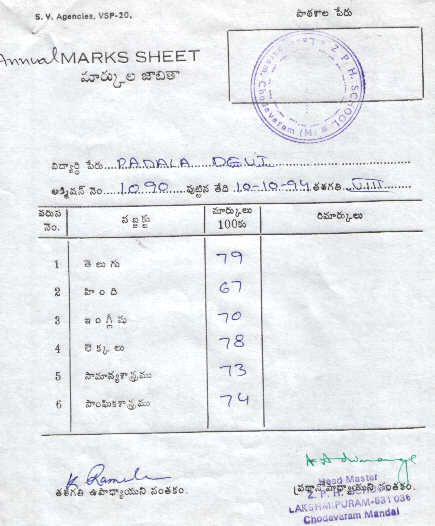 S. V. Agencies, VSP-20.
పాఠశాల పేరు
Annual MARKS SHEET
మార్కుల జాబితా
Z. P. H. SCHOOL
Chodavaram (M)
విద్యార్థి పేరు PADALA DEVI
అడ్మిషన్ నెం. 1090 పుట్టిన తేది 10-10-94 తరగతి VIII
వరుస నెం. సబ్జక్టు మార్కులు 100కు రిమార్కులు
1 తెలుగు 79
2 హింది 67
3 ఇంగ్లీషు 70
4 లెక్కలు 78
5 సామాన్యశాస్త్రము 73
6 సాంఘికశాస్త్రము 74
తరగతి ఉపాధ్యాయుని సంతకం.
ప్రధానోపాధ్యాయుని సంతకం.
Head Master
Z. P. H. SCHOOL
LAKSHMIPURAM-531 036
Chodavaram Mandal